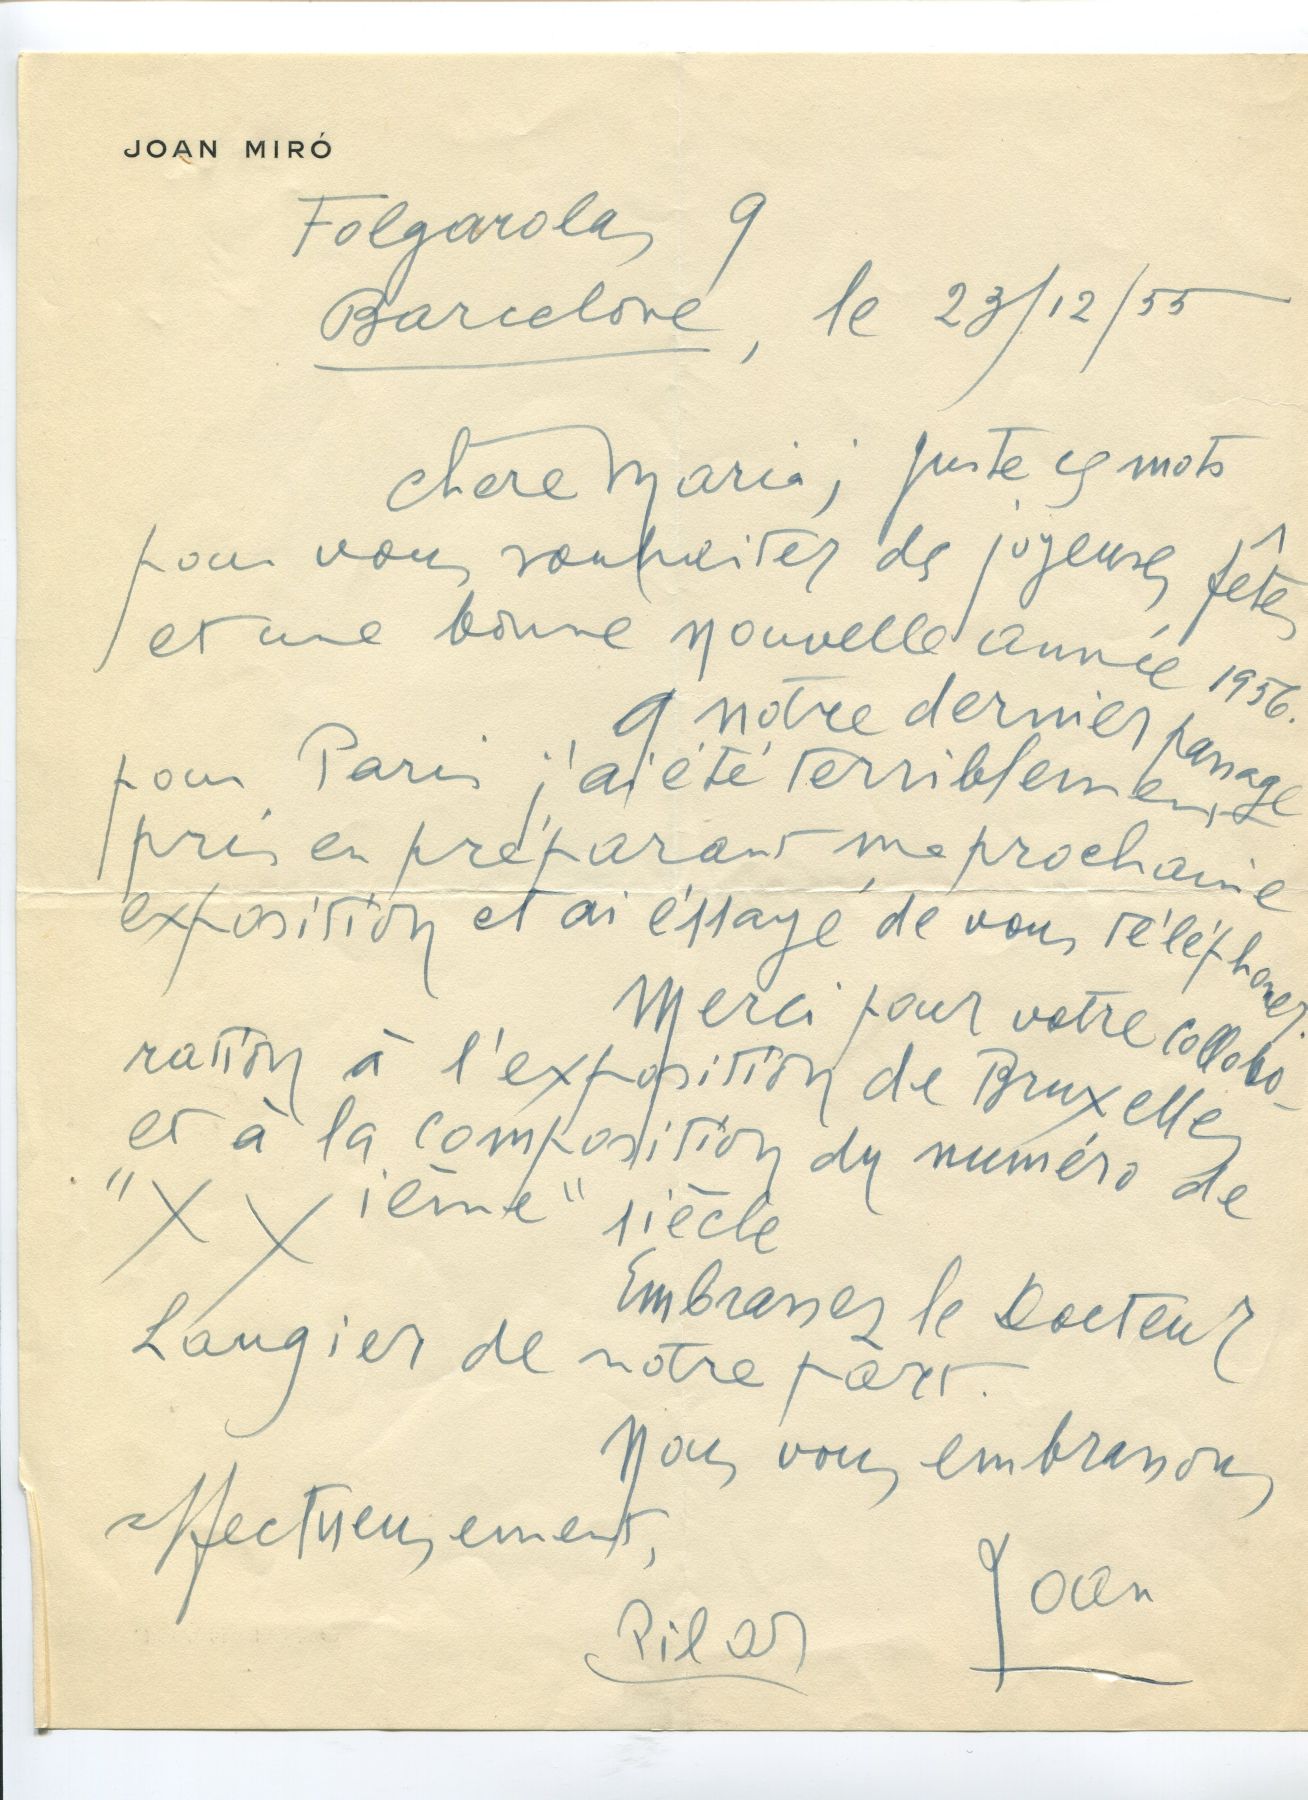 JOAN MIRÓ
Folgarolas 9
Barcelone, le 23/12/55
Chere Maria, juste ces mots
pour vous souhaiter des joyeuses fêtes
et une bonne nouvelle année 1956.
A notre dernier passage
pour Paris j'ai été terriblement
pris en préparant ma prochaine
exposition et ai éssayé de vous téléphoner.
Merci pour votre collabo-
ration à l'exposition de Bruxelles
et à la composition du numéro de
"XXième" siècle
Embrassez le Docteur
Laugier de notre part.
Nous vous embrassons
affectueusement,
Joan
Pilar